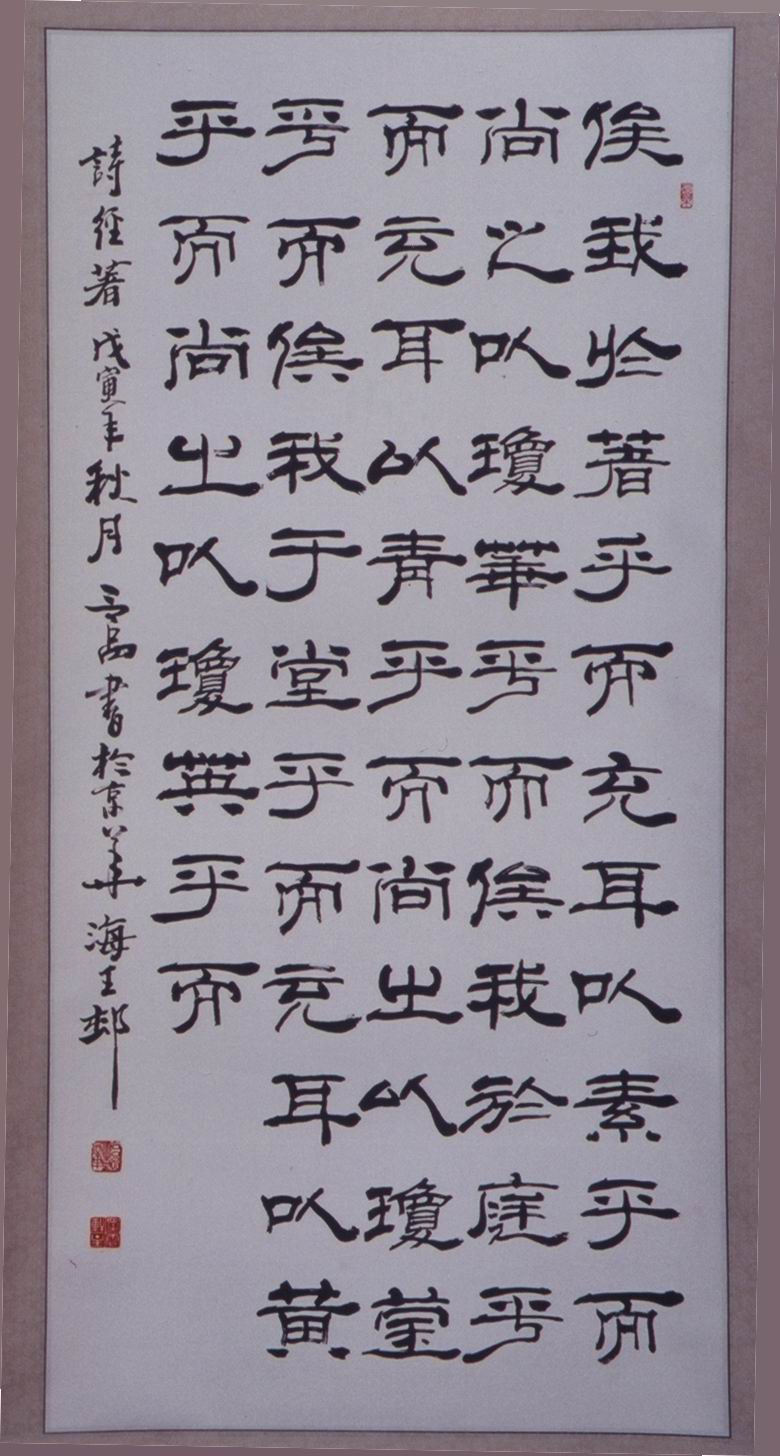 俟我於著乎而充耳以素乎而
尚之以瓊華乎而俟我於庭乎
而充耳以青乎而尚之以瓊莹
乎而俟我于堂乎而充耳以黄
乎而尚之以瓊英乎而
詩經著 戊寅年秋月 書於京華海王邨